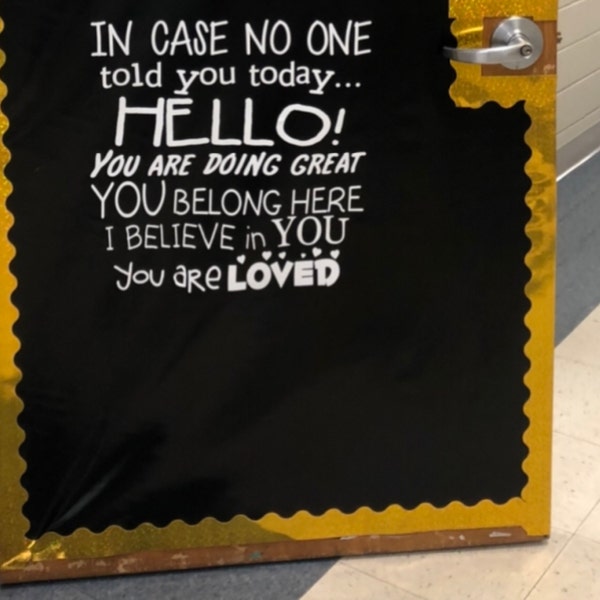 IN CASE NO ONE
told you today...
HELLO!
YOU ARE DOING GREAT
YOU BELONG HERE
I BELIEVE in YOU
you are LOVED